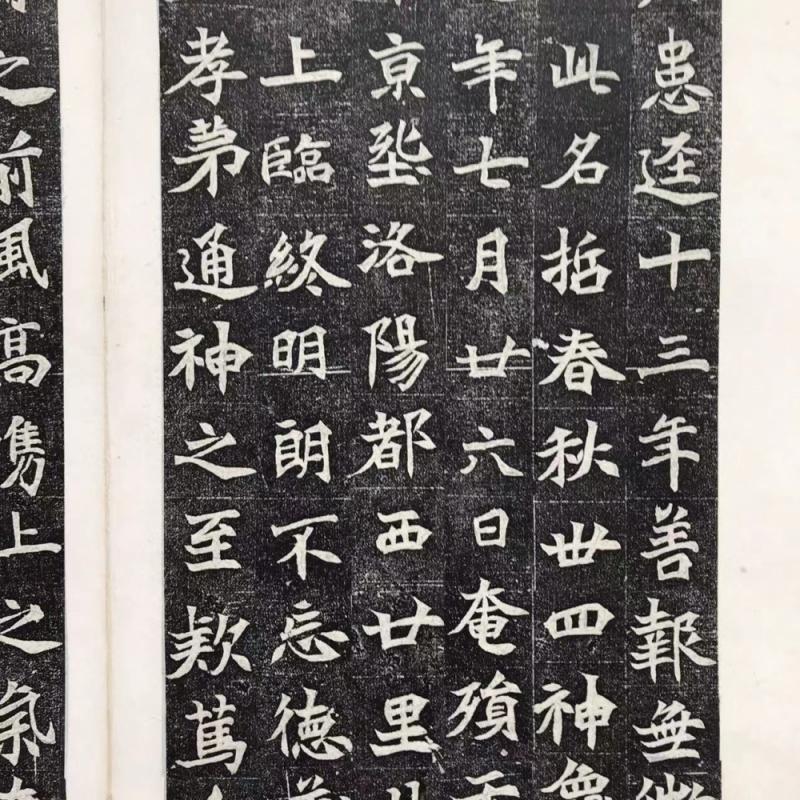 患迳十三年善報無
此名哲春秋卌四神龜
年七月廿六日奄殞于
京洛陽都西廿里
上臨終明朗不忘德
孝苐通神之至欵篤
之前風高儁上之氣